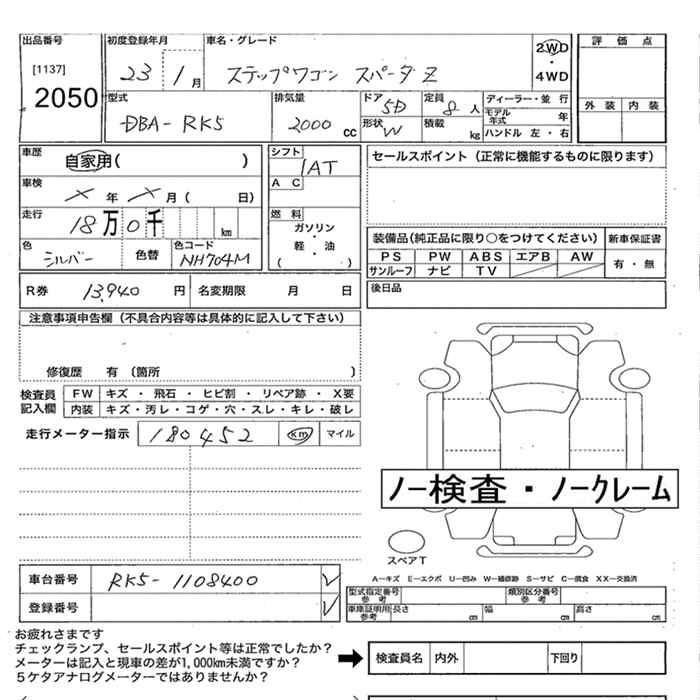 出品番号 初度登録年月 車名・グレード 2WD 評価点
[1137] 23 1月 ステップワゴン スパーダ Z ・
2050 4WD
型式 排気量 ドア 5D 定員 8人 ディーラー・並行 外装 内装
DBA-RK5 2000cc 形状 W 積載 kg モデル年式 年
ハンドル 左・右
車歴 自家用( ) シフト セールスポイント(正常に機能するものに限ります)
1AT
車検 × 年 × 月( 日) AC
走行 18万0千 km 燃料
ガソリン
・
軽・油
( )
色 シルバー 色替 色コード NH704M
装備品(純正品に限り○をつけてください) 新車保証書
PS PW ABS エアB AW 有・無
サンルーフ ナビ TV
R券 13,940円 名変期限 月 日 後日品
注意事項申告欄(不具合内容等は具体的に記入して下さい)
修復歴 有(箇所 )
検査員記入欄 FW キズ・飛石・ヒビ割・リペア跡・X要
内装 キズ・汚レ・コゲ・穴・スレ・キレ・破レ
走行メーター指示 180452 km マイル
ノー検査・ノークレーム
スペアT
A-キズ E-エクボ U-凹み W-補修跡 S-サビ C-腐食 XX-交換済
車台番号 RK5-1108400 ✓
登録番号 ✓
型式指定番号参考 類別区分番号参考
車庫証明用参考 長さ cm 幅 cm 高さ cm
お疲れさまです
チェックランプ、セールスポイント等は正常でしたか?
メーターは記入と現車の差が1,000km未満ですか?
5ケタアナログメーターではありませんか?
検査員名 内外 下回り